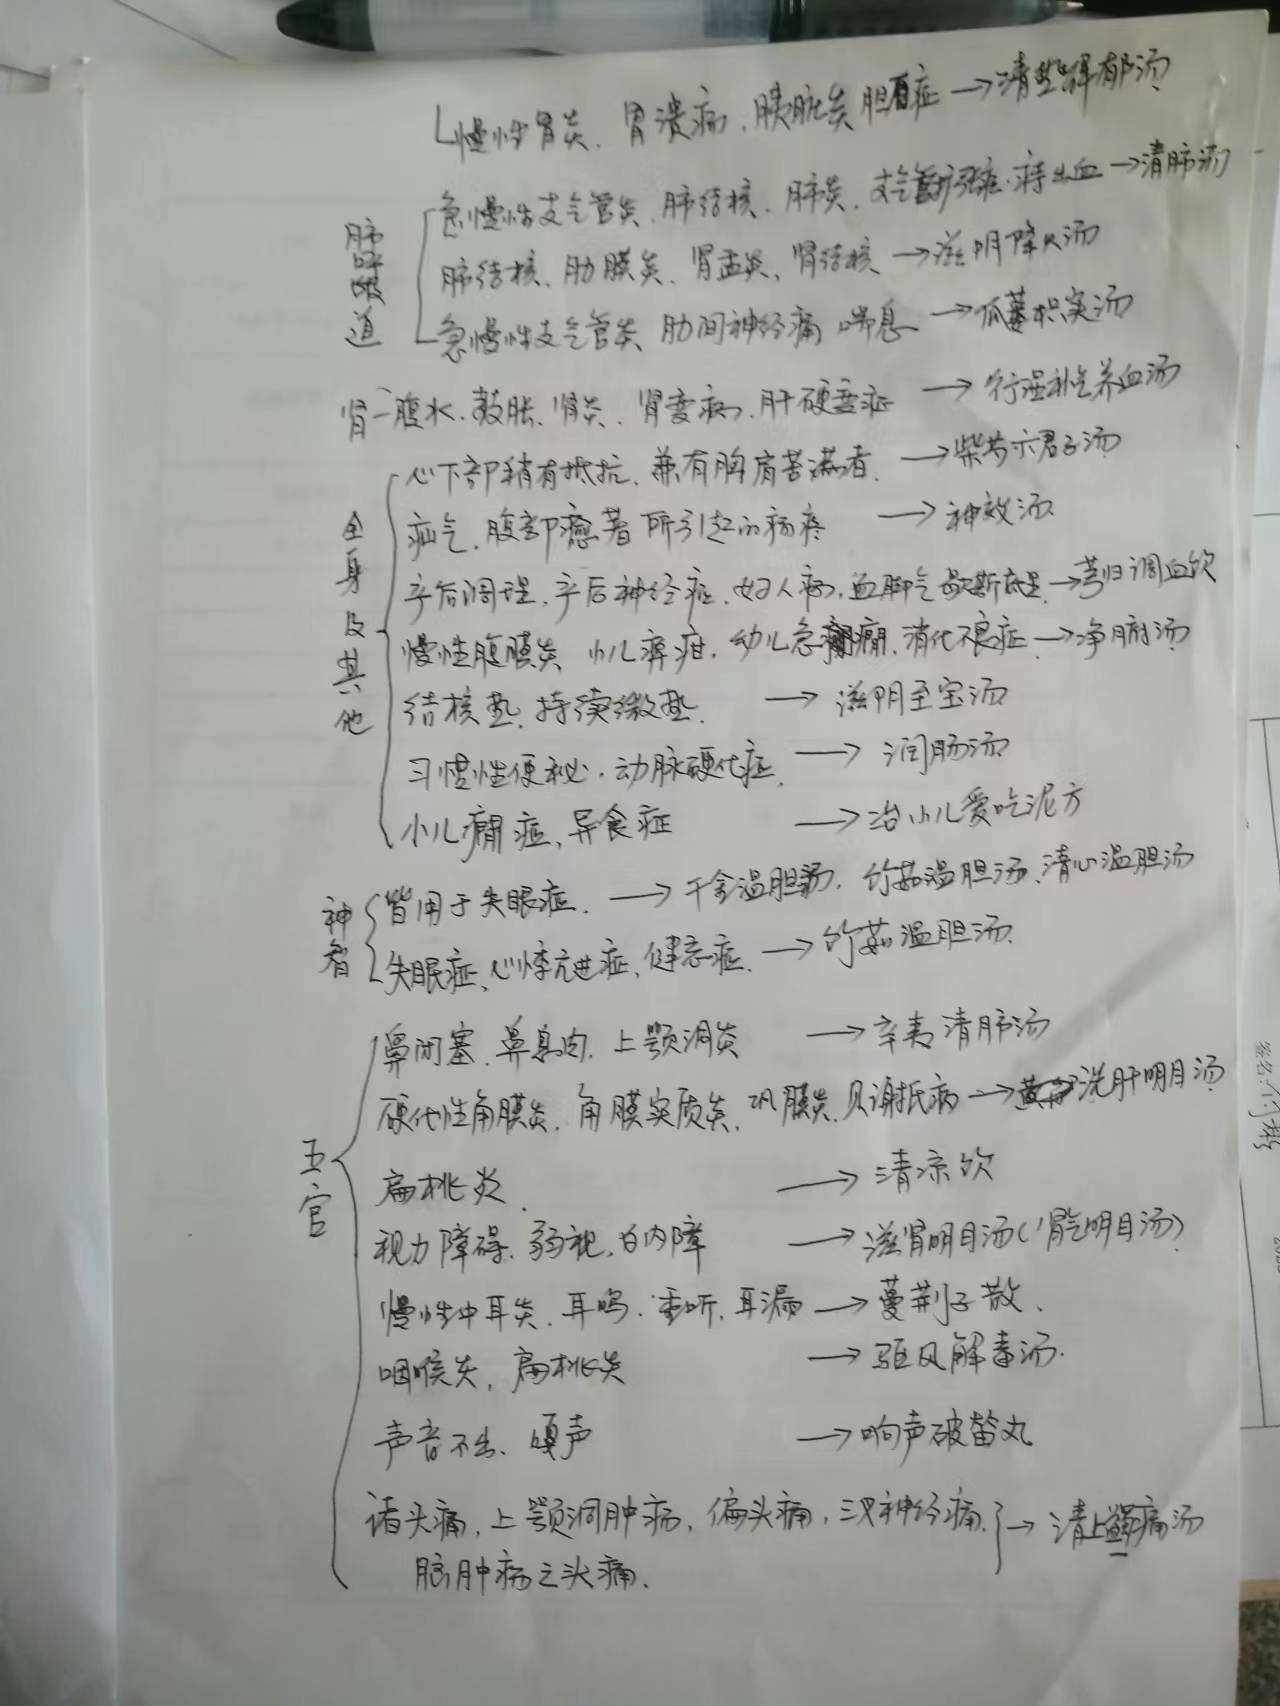 慢性胃炎、胃溃疡、胰脏炎 胆石症→清热解郁汤
肺呼吸道
急慢性支气管炎、肺结核、肺炎、支气管扩张症、痔出血→清肺汤
肺结核、肋膜炎、肾盂炎、肾结核→滋阴降火汤
急慢性支气管炎、肋间神经痛 喘息→瓜蒌枳实汤
肾—腹水、鼓胀、肾炎、肾变病、肝硬变症→行湿补气养血汤
全身及其他
心下部稍有抵抗、兼有胸肩苦满者、→柴芍六君子汤
疝气、腹部瘀著所引起的疼→神效汤
产后调理、产后神经症、妇人病、血脚气 歇斯底里、→芎归调血饮
慢性腹膜炎 小儿疳、幼儿急癎、消化不良症→净腑汤
结核热、持续微热、→滋阴至宝汤
习惯性便秘、动脉硬化症、→润肠汤
小儿癇症、异食症→治小儿爱吃泥方
神智
皆用于失眠症、→千金温胆汤、竹茹温胆汤、清心温胆汤
失眠症、心悸亢进症、健忘症、→竹茹温胆汤、
五官
鼻闭塞、鼻息肉、上颚洞炎→辛夷清肺汤
硬化性角膜炎、角膜实质炎、巩膜炎、贝谢抵病→洗肝明目汤
扁桃炎、→清凉饮
视力障碍、弱视、白内障→滋肾明目汤(肾气明目汤)
慢性中耳炎、耳鸣、重听、耳漏→蔓荆子散、
咽喉炎、扁桃炎→驱风解毒汤、
声音不出、嗄声→响声破笛丸
诸头痛、上颚洞肿疡、偏头痛、三叉神经痛、→清上蠲痛汤
脑肿疡之头痛、